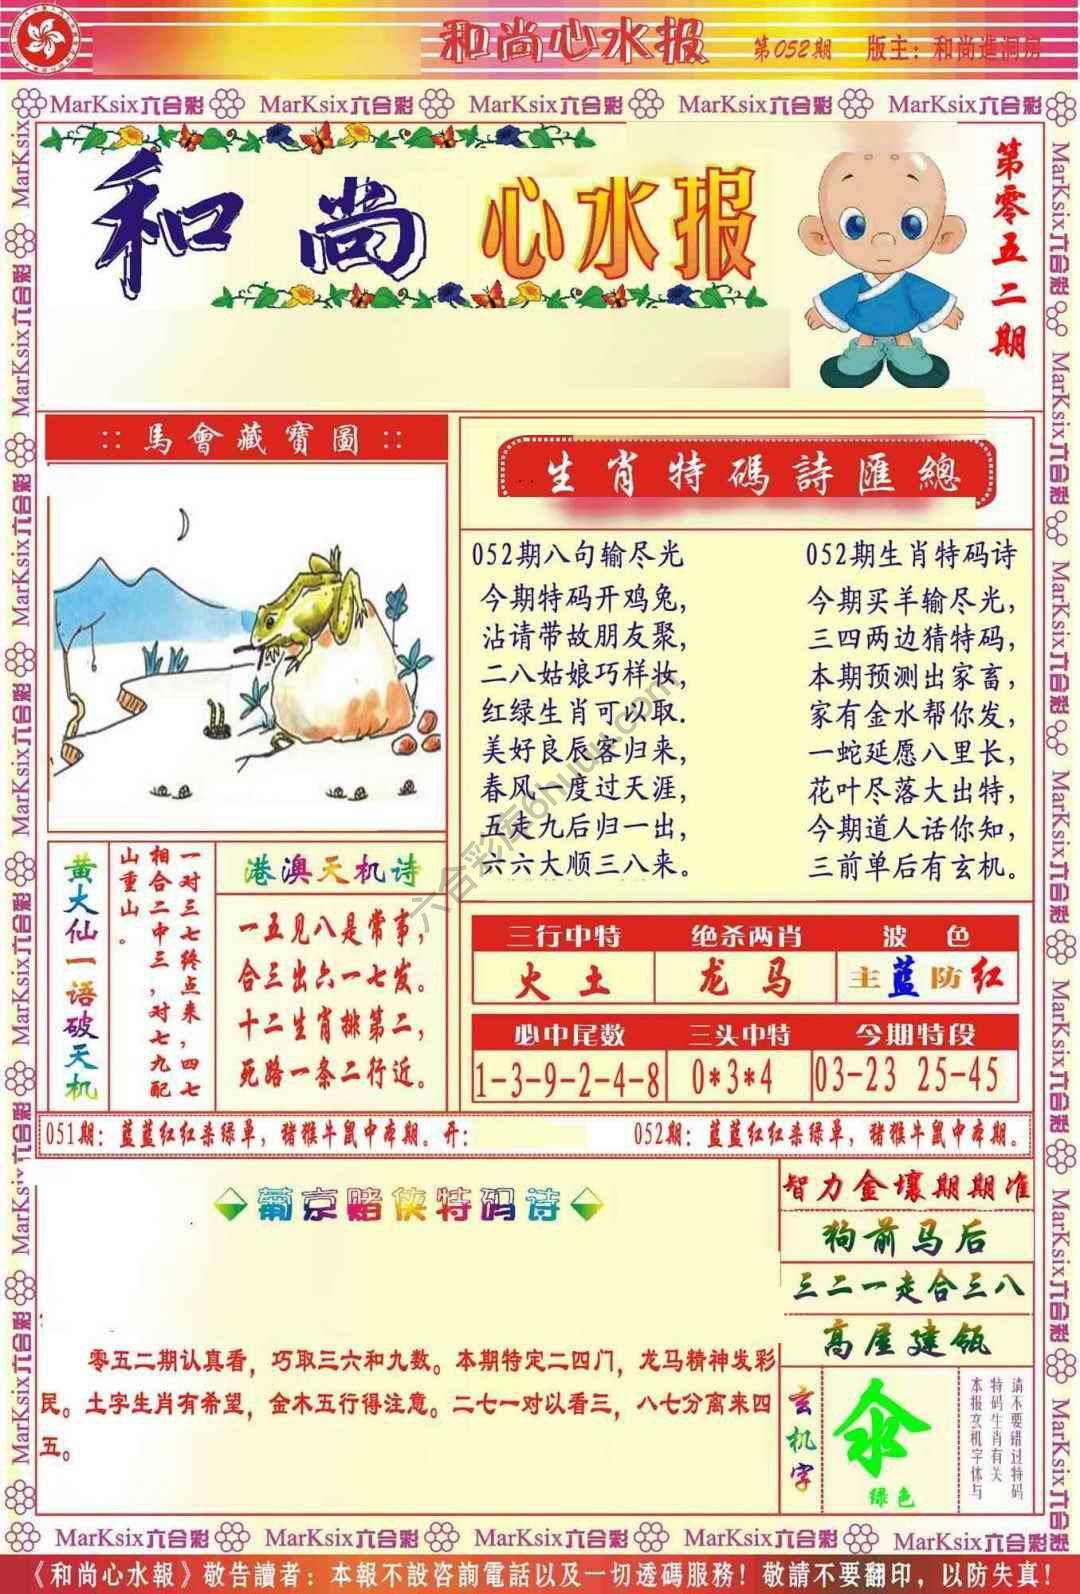 和尚心水报 第052期 版主：和尚進洞房
MarKsix六合彩 MarKsix六合彩 MarKsix六合彩 MarKsix六合彩 MarKsix六合彩
和尚心水报
第零五二期
:: 馬會藏寶圖 ::
生肖特碼詩匯總
052期八句输尽光
今期特码开鸡兔，
沾请带故朋友聚，
二八姑娘巧样妆，
红绿生肖可以取.
美好良辰客归来，
春风一度过天涯，
五走九后归一出，
六六大顺三八来。
052期生肖特码诗
今期买羊输尽光，
三四两边猜特码，
本期预测出家畜，
家有金水帮你发，
一蛇延愿八里长，
花叶尽落大出特，
今期道人话你知，
三前单后有玄机。
六合彩库6huuu.com
黄大仙一语破天机
一对三七终点来，四七
相合二中三，对七九配
山重山。
港澳天机诗
一五见八是常事，
合三出六一七发。
十二生肖排第二，
死路一条二行近。
三行中特 绝杀两肖 波色
火土 龙马 主蓝防红
必中尾数 三头中特 今期特段
1-3-9-2-4-8 0*3*4 03-23 25-45
051期：蓝蓝红红杀绿单，猪猴牛鼠中本期。开：
052期：蓝蓝红红杀绿单，猪猴牛鼠中本期。
葡京赌侠特码诗
零五二期认真看，巧取三六和九数。本期特定二四门，龙马精神发彩
民。土字生肖有希望，金木五行得注意。二七一对以看三，八七分离来四
五。
智力金壤期期准
狗前马后
三二一走合三八
高屋建瓴
玄机字
汆
绿色
请不要错过特码
特码生肖有关
本报玄机字体与
MarKsix六合彩 MarKsix六合彩 MarKsix六合彩 MarKsix六合彩 MarKsix六合彩
《和尚心水報》敬告讀者：本報不設咨詢電話以及一切透碼服務！敬請不要翻印，以防失真！